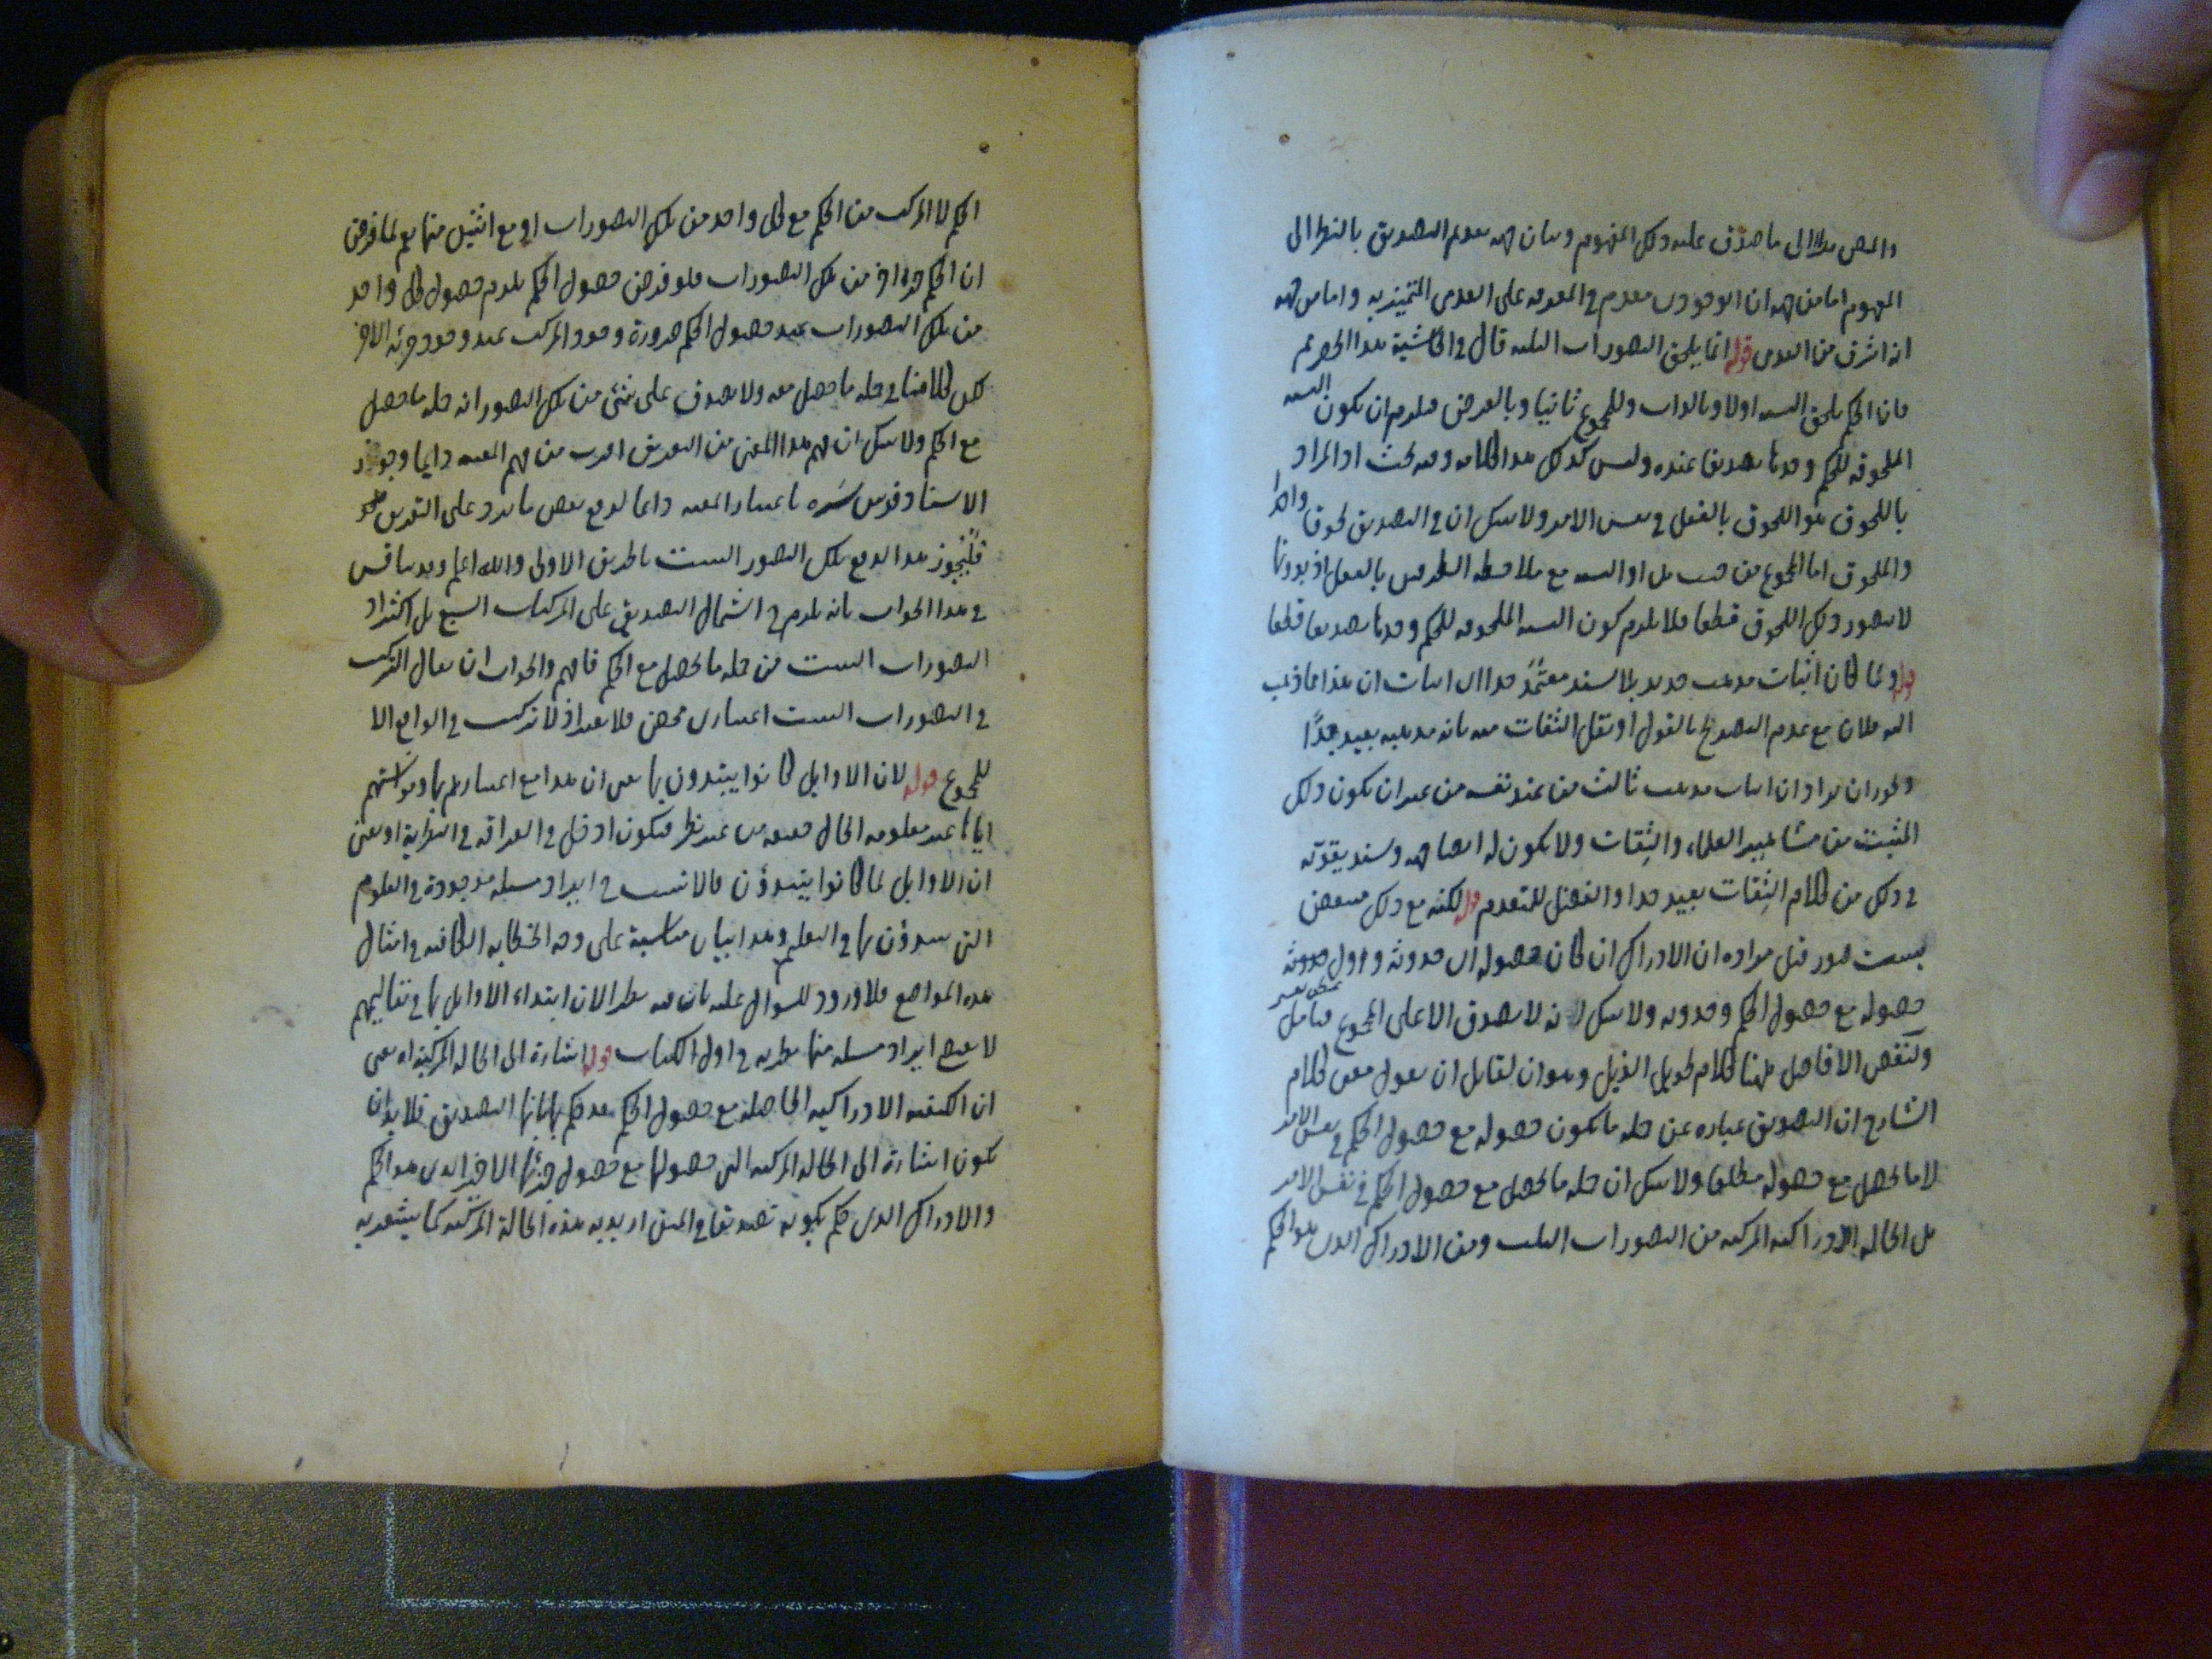 والمص نظر الى ما صدق عليه ذلك المفهوم وبيان جهه تقديم التصديق بالنظر الى
المفهوم اما من جهه ان الوجودى مقدم فى المعرفه على العدمى المتميز به واما من جهه
انه اشرف من العدمى قوله انما يلحق التصورات الثلثه قال فى الحاشية هذا الحصر مم
فان الحكم يلحق النسبه اولا وبالذات وللمجموع ثانيا وبالعرض فيلزم ان يكون النسبه
الملحوقه للحكم وحدها تصديقا عنده وليس كذلك هذا كلامه وفيه بحث اذ المراد
باللحوق هو اللحوق بالفعل فى نفس الامر ولا شك ان فى التصديق لحوقا واحدا
والملحوق اما المجموع من حيث هو او النسبه مع ملاحظه الطرفين بالفعل اذ بدونها
لا يتصور ذلك اللحوق قطعا فلا يلزم كون النسبه الملحوقه للحكم وحدها تصديقا قطعا
قوله ولما كان اثبات مذهب جديد بلا سند معتمد جدا اى اثبات ان هذا مما ذهب
اليه فلان مع عدم التصريح بالقول او نقل الثقات عنه بانه مذهبه بعيد جدًا
ويجوز ان يراد ان اثبات مذهب ثالث من عند نفسه من غير ان يكون ذلك
المثبت من مشاهير العلماء والثقات ولا يكون له ايضا جهه وسند يقويه
فى ذلك من كلام الثقات بعيد جدا والفضل للمتقدم قوله لكنه مع ذلك منقوض
بست صور قيل مراده ان الادراك ان كان حصوله اى حدوثه واول حدوثه
حصوله مع حصول الحكم وحدوثه ولا شك انه لا يصدق الا على المجموع فتامل
ولبعض الافاضل ههنا كلام طويل الذيل وهو ان لقايل ان يقول معنى كلام
الشارح ان التصديق عباره عن جمله ما يكون حصوله مع حصول الحكم فى نفس الامر
لا ما يحصل مع حصوله مطلقا ولا شك ان جمله ما يحصل مع حصول الحكم فى نفس الامر
هى الحاله الادراكيه المركبه من التصورات الثلث ومن الادراك الذى هو الحكم
الحكم لا المركب من الحكم مع كل واحد من تلك التصورات او مع اثنين منها مع لما فرض
ان الحكم جزء اخر من تلك التصورات فلو فرض حصول الحكم يلزم حصول كل واحد
من تلك التصورات عند حصول الحكم ضرورة وجود المركب عند وجود جزئه الاخر
لكن كلامنا فى جمله ما حصل معه ولا يصدق على شئ من تلك التصور انه جمله ما حصل
مع الحكم ولا شك ان فهم هذا المعنى من التعريف اقرب من فهم المعيه دايما وجواز
الاستاد قدس سره باعتبار المعيه دايما لدفع بعض ما يرد على التعريف
فليجوز هذا الدفع تلك التصور الست بطريق الاولى والله اعلم وقد يناقش
فى هذا الجواب بانه يلزم فى اشتمال التصديق على المركبات السبع بل اكثر اذ
التصورات الست من جمله ما يحصل مع الحكم فافهم والجواب ان يقال التركيب
فى التصورات الست اعتبارى محض فلا يعد اذ لا تركيب فى الواقع الا
للمجموع قوله لان الاوايل كانوا يبتدون بها يعنى ان هذا مع اعتبارهم بها وموانستهم
اياها غير معلومه الحال حقيقه من غير نظر فيكون ادخل فى العراقه فى النظرية او يعنى
ان الاوايل لما كانوا يبتدؤن فالانسب فى ايراد مسئله موجودة فى العلوم
التى يبتدؤن بها فى التعليم وهذا بيان مناسبة على وجه الخطابه الكافيه فى امثال
هذه المواضع فلا ورود للسوال عليه بان فيه نظر الان ابتداء الاوايل بها فى تعاليمهم
لا يقتضى ايراد مسئله منها نظريه فى اول الكتاب قوله اشارة الى الحاله المركبة اه يعنى
ان الكيفيه الادراكيه الحاصلة مع حصول الحكم بعد حكم بانها التصديق فلا بد ان
يكون اشارة الى الحاله المركبه التى حصولها مع حصول جزئها الاخير الذى هو الحكم
والادراك الذى حكم بكونه تصديقا فى المتن اريد به هذه الحالة المركبه كما يشعر به